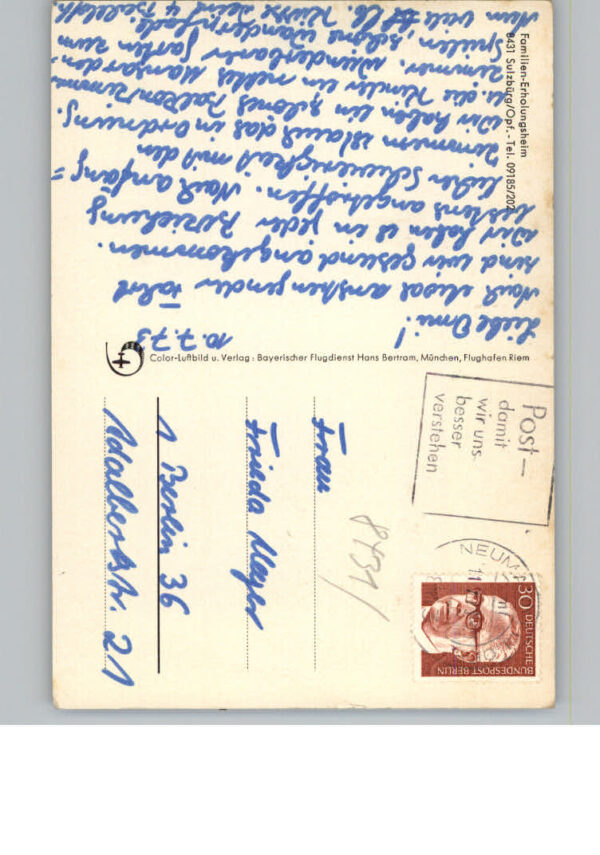 Familien-Erholungsheim
8431 Sulzbürg/Opf. - Tel. 09185/202
10.7.73
Liebe Omi!
Nach etwas anstrengender Fahrt
sind wir gesund angekommen.
Wir haben es in jeder Beziehung
bestens angetroffen. Nach anfäng=
licher Schwierigkeit mit den
Zimmern ist auch das in Ordnung.
Wir haben ein schönes Balkonzimmer
u. die Kinder ein nettes Mansarden=
zimmer. Wunderbarer Garten zum
Spielen, schöne Wanderpfade.
Nun viele
Color-Luftbild u. Verlag: Bayerischer Flugdienst Hans Bertram, München, Flughafen Riem
Post—
damit
wir uns
besser
verstehen
NEUM
30
DEUTSCHE
BUNDESPOST BERLIN
8431/
Frau
Frieda Mayer
1 Berlin 36
Adalbertstr. 21